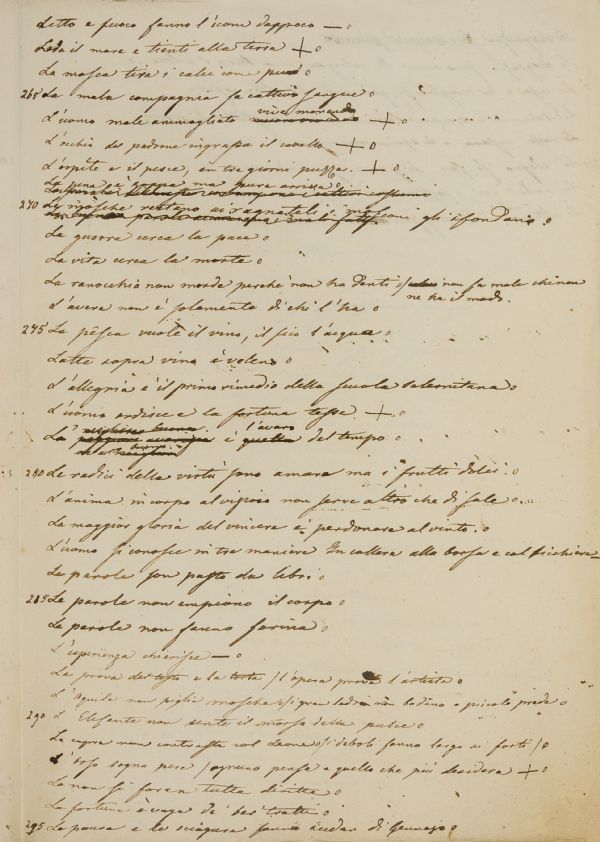 Letto e fuoco fanno l'uomo dappoco — o
Loda il mare e tienti alla terra + o
La mosca tira i calci come può o
265 La mala compagnia fa cattivo sangue o
L'uomo male ammogliato vive morendo + o
L'occhio del padrone ingrassa il cavallo + o
L'ospite e il pesce, en tre giorni puzza. + o
La pena è zoppa ma pure arriva o
270 Le mosche restano ai ragnateli i mosconi gli sfondano. o
La guerra cerca la pace o
La vita cerca la morte o
La ranocchia non morde perchè non ha denti o / non fa male chi non
ne ha il modo.
L'avere non è solamente di chi l'ha o
275 La pèsca vuole il vino, il fico l'acqua o
Latte sopra vino è veleno o
L'allegria è il primo rimedio della scuola salernitana o
L'uomo ordisce e la fortuna tesse + o
La è l'avaro del tempo o
280 Le radici della virtù sono amare ma i frutti dolci. o
L'anima in corpo al vizioso non serve altro che di sale o
La maggior gloria del vincere è perdonare al vinto. o
L'uomo si conosce in tre maniere In collera alla borsa e col bicchiere
Le parole son pasto da libri o
285 Le parole non empiono il corpo o
Le parole non fanno farina o
L'esperienza chiarisce — o
La prova del testo è la torta / l'opera prova l'artista o
L'Aquila non piglia mosche / i gran ladri non badano a piccole prede o
290 L'Elefante non sente il morso della pulce o
La capra non contrasta col Leone o / i deboli fanno largo ai forti / o
L'orso sogna pere / ognuno pensa a quello che più desidera + o
Le non si foran tutte diritte
La fortuna è vaga de' bei tratti o
295 La paura e la sciagura sudar di Gennajo o